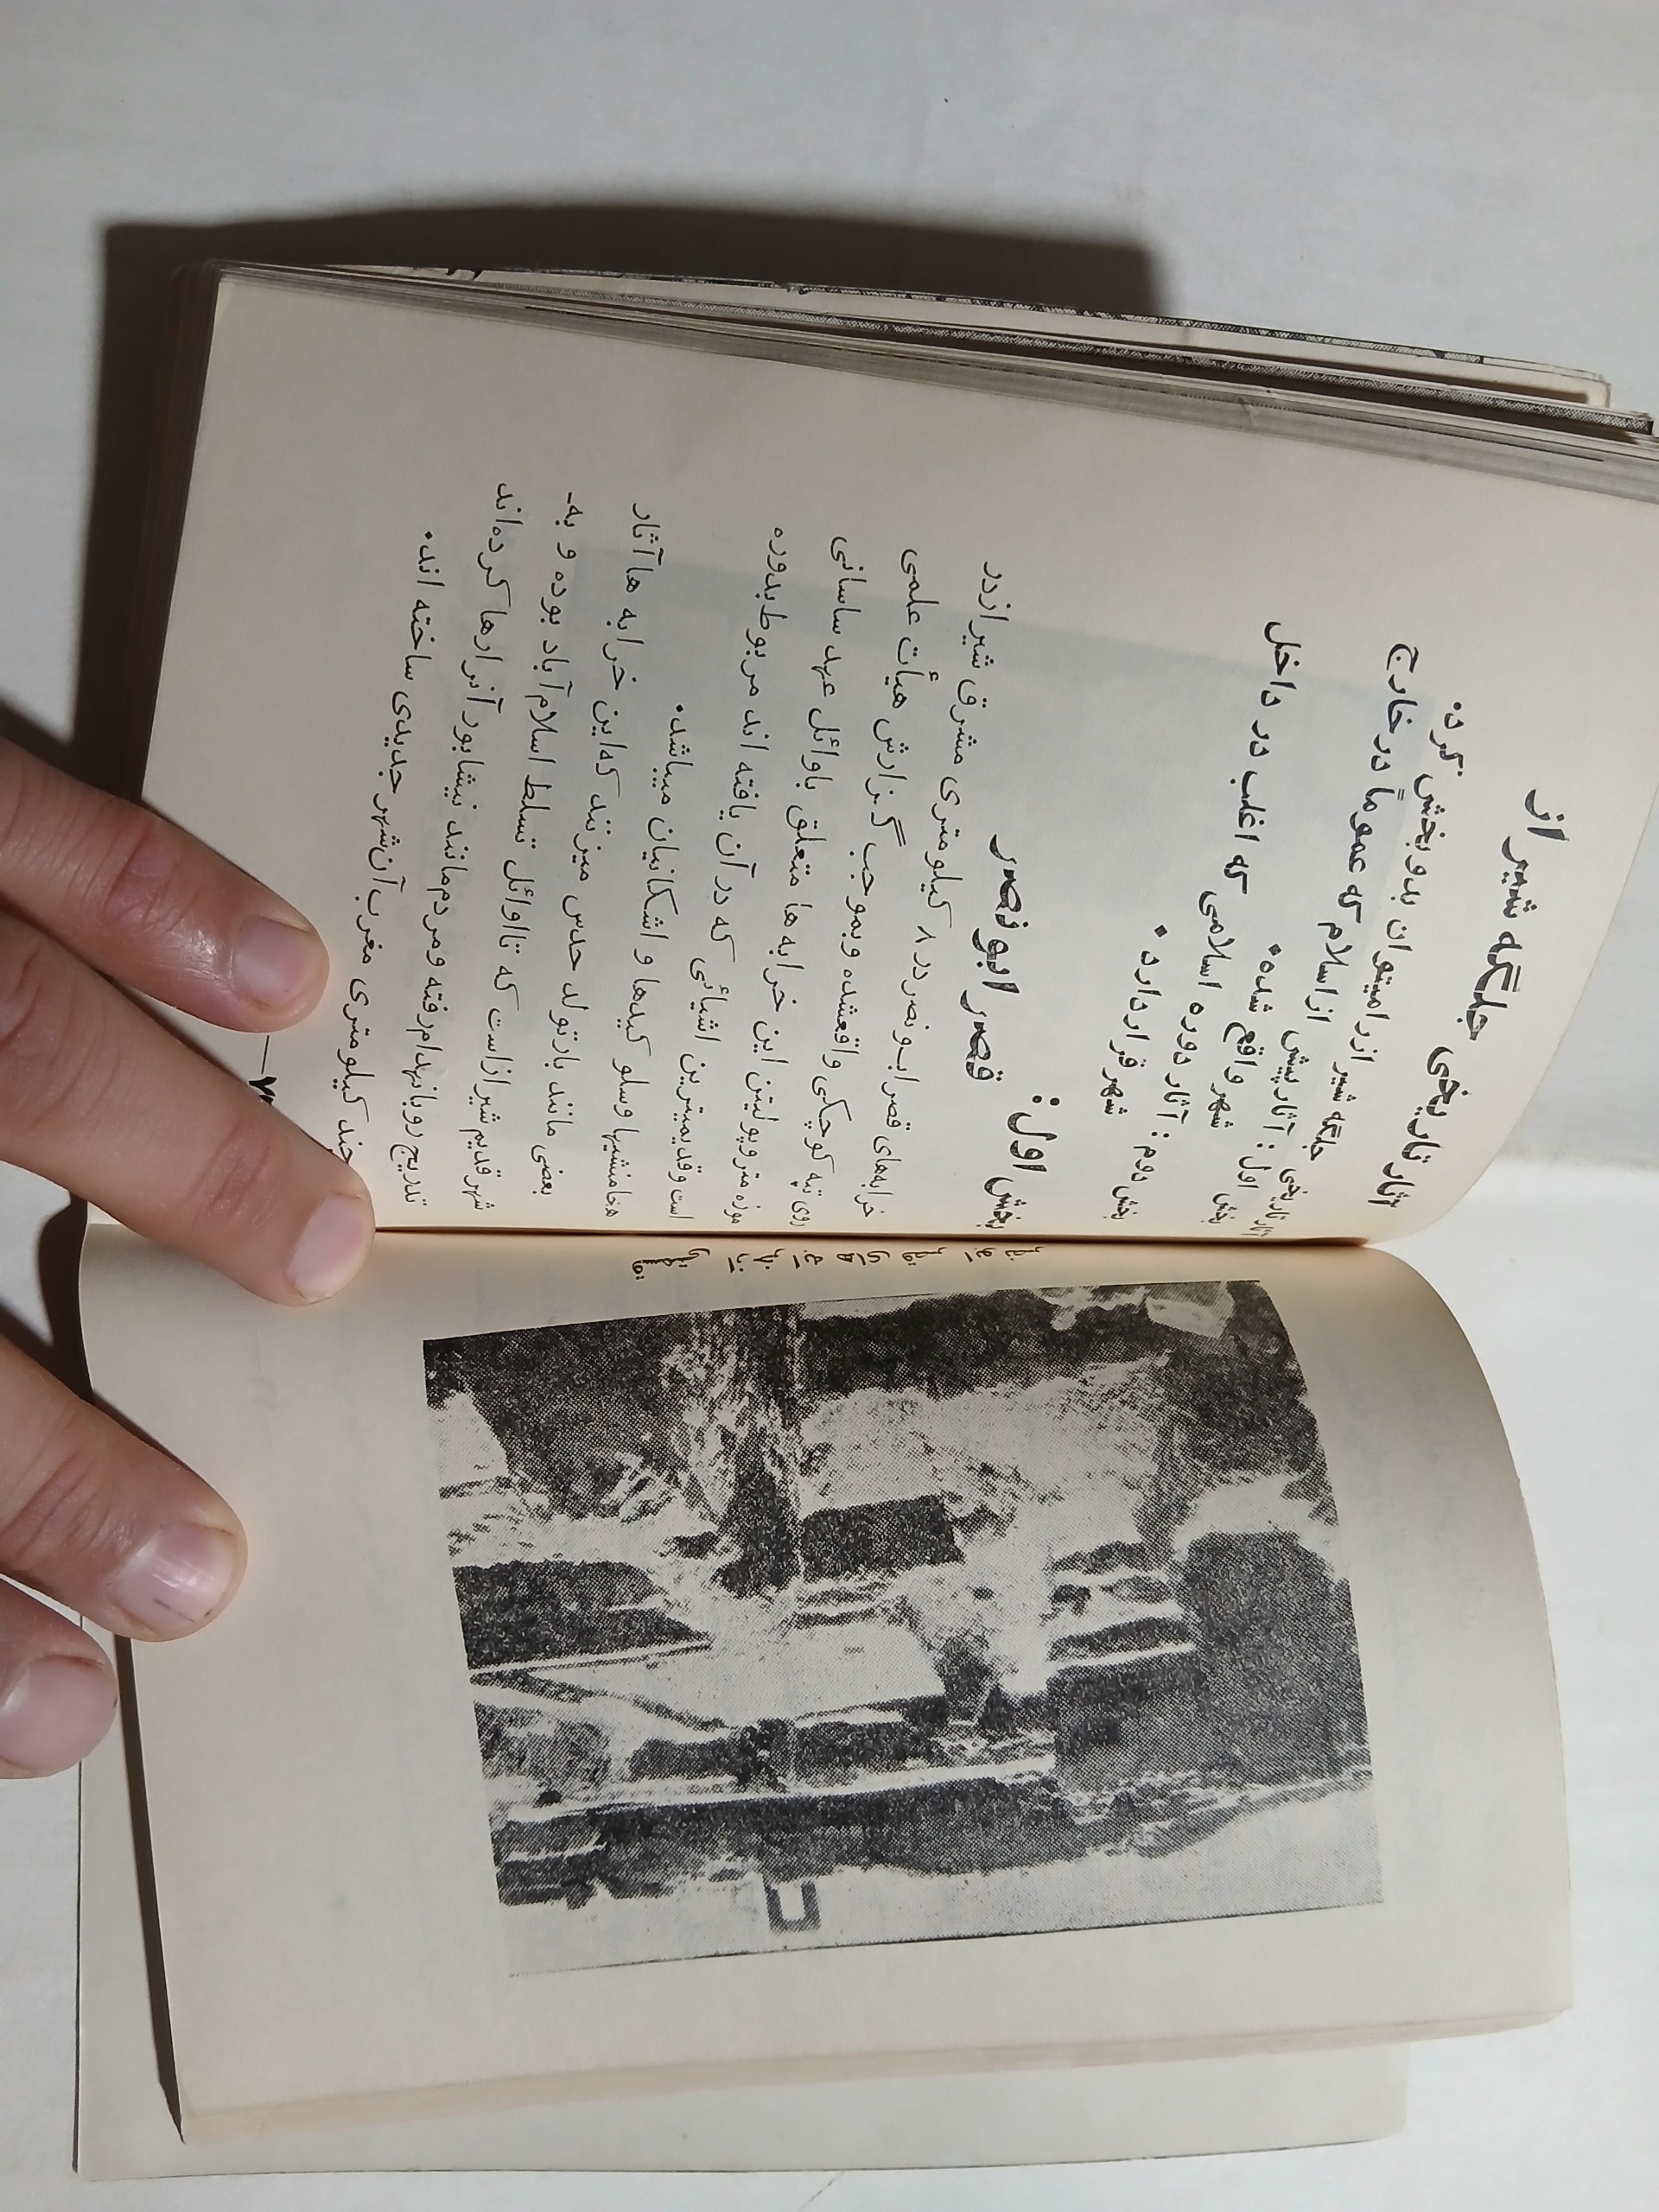 آثار تاریخی جلگه شیراز
آثار تاریخی جلگه شیراز را میتوان بدو بخش کرد:
بخش اول: آثار پیش از اسلام که عموماً در خارج
شهر واقع شده.
بخش دوم: آثار دوره اسلامی که اغلب در داخل
شهر قرار دارد.
بخش اول: قصر ابونصر
خرابه‌های قصر ابونصر در ۸ کیلومتری مشرق شیراز در
روی تپه کوچکی واقعشده و بموجب گزارش هیأت علمی
موزه متروپولیتن این خرابه ها متعلق باوائل عهد ساسانی
است و قدیمیترین اشیائی که در آن یافته اند مربوط بدوره
هخامنشیها و سلوکیدها و اشکانیان میباشد.
بعضی مانند بارتولد حدس میزنند که این خرابه ها آثار
شهر قدیم شیراز است که تا اوائل تسلط اسلام آباد بوده و به-
تدریج رو بانهدام رفته و مردم مانند نیشابور آنرا رها کرده‌اند
چند کیلومتری مغرب آن شهر جدیدی ساخته اند.
قصر ابو نصر